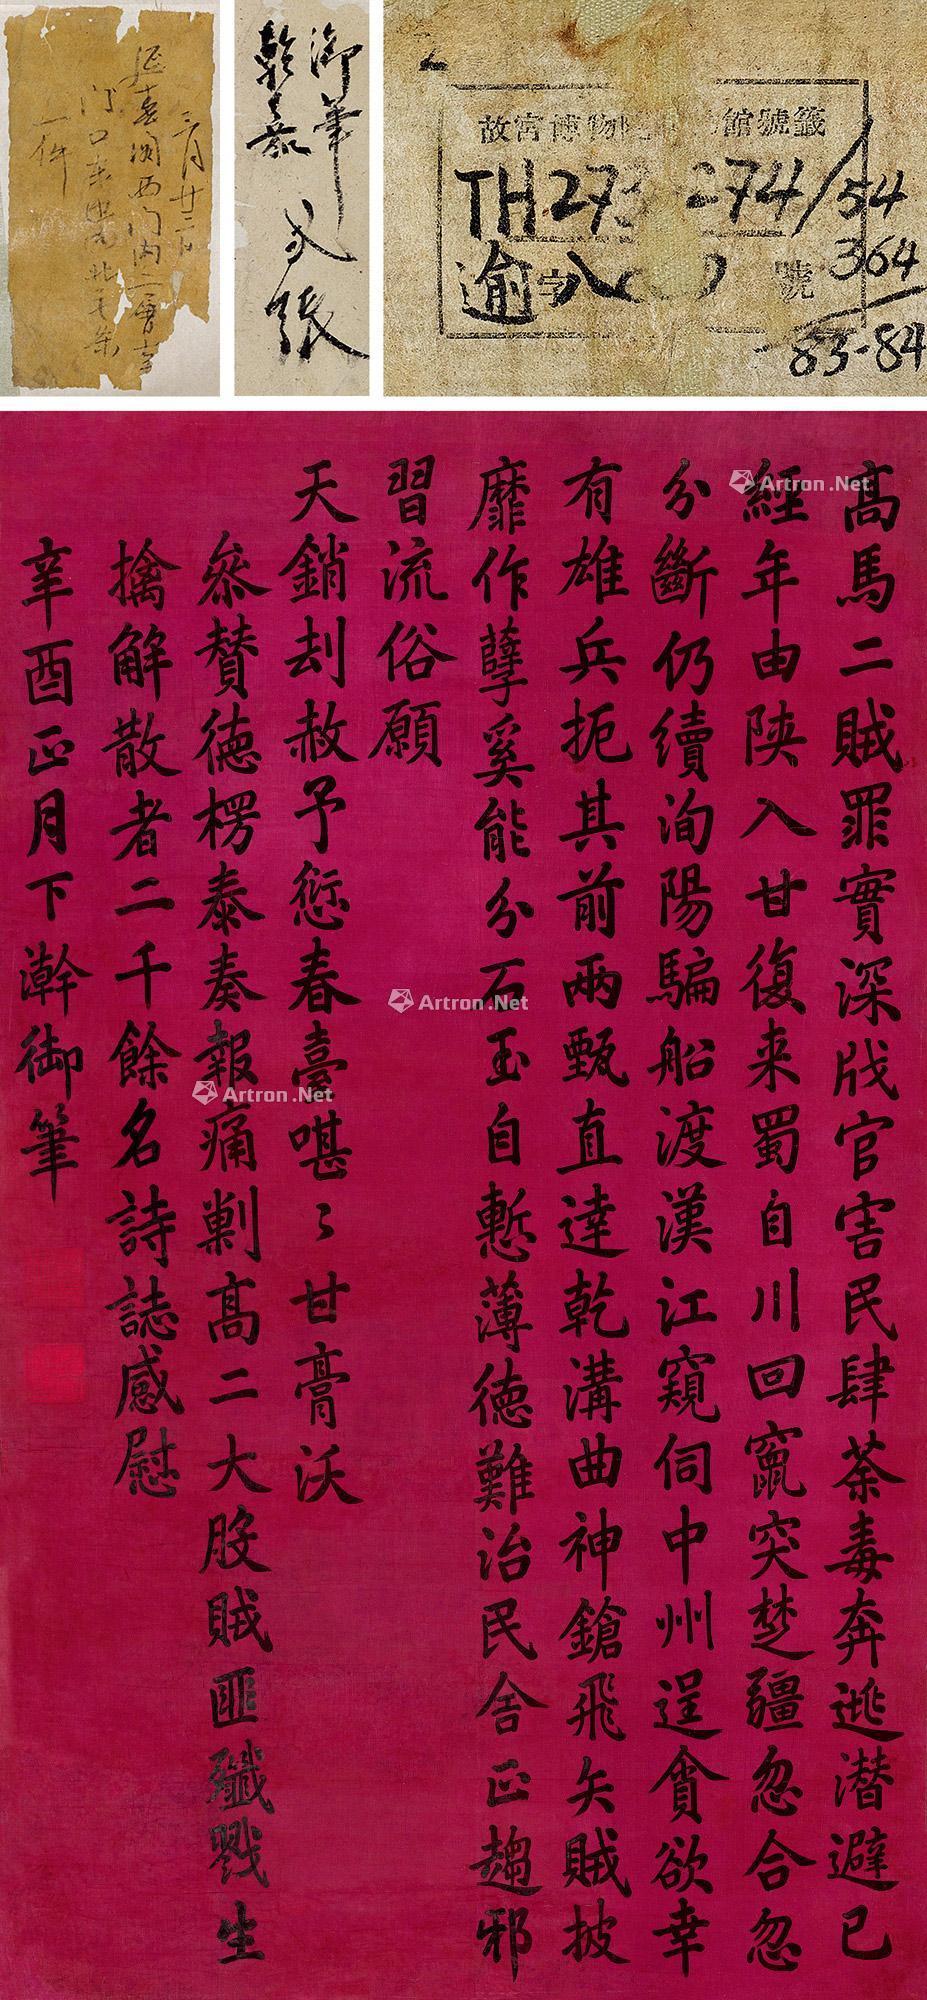 三月廿二日
延喜閣西门内二層夹
门口東边北天朱
一件
御筆
乾嘉
弍張
2
故宮博物 館號籤
TH273 274/54
逾字八 號
364
83-84
高馬二賊罪實深戕官害民肆荼毒奔逃潛避已
經年由陝入甘復来蜀自川回竄突楚疆忽合忽
分斷仍續洵陽騙船渡漢江窺伺中州逞貪欲幸
有雄兵扼其前兩甄直達乾溝曲神鎗飛矢賊披
靡作孽奚能分石玉自慙薄德難治民舍正趨邪
習流俗願
天銷刦赦予愆春臺堪〻甘膏沃
叅賛德楞泰奏報痛剿高二大股賊匪殲戮生
擒解散者二千餘名詩誌感慰
辛酉正月下澣御筆
Artron.Net
Artron.Net
Artron.Net